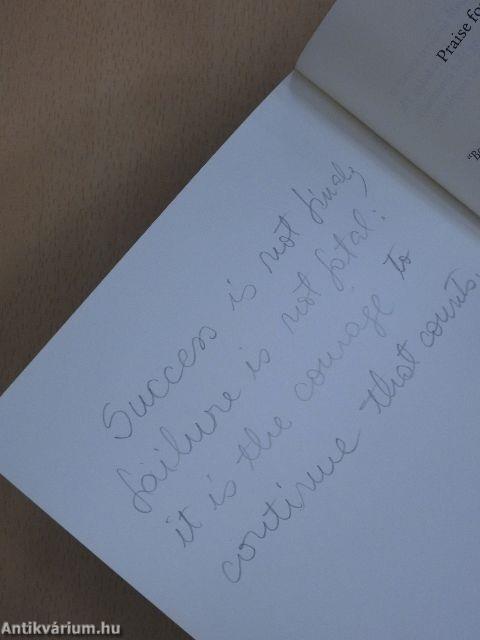 Success is not final,
failure is not fatal:
it is the courage to
continue that counts.
Praise fo
"Be
Antikvárium.hu